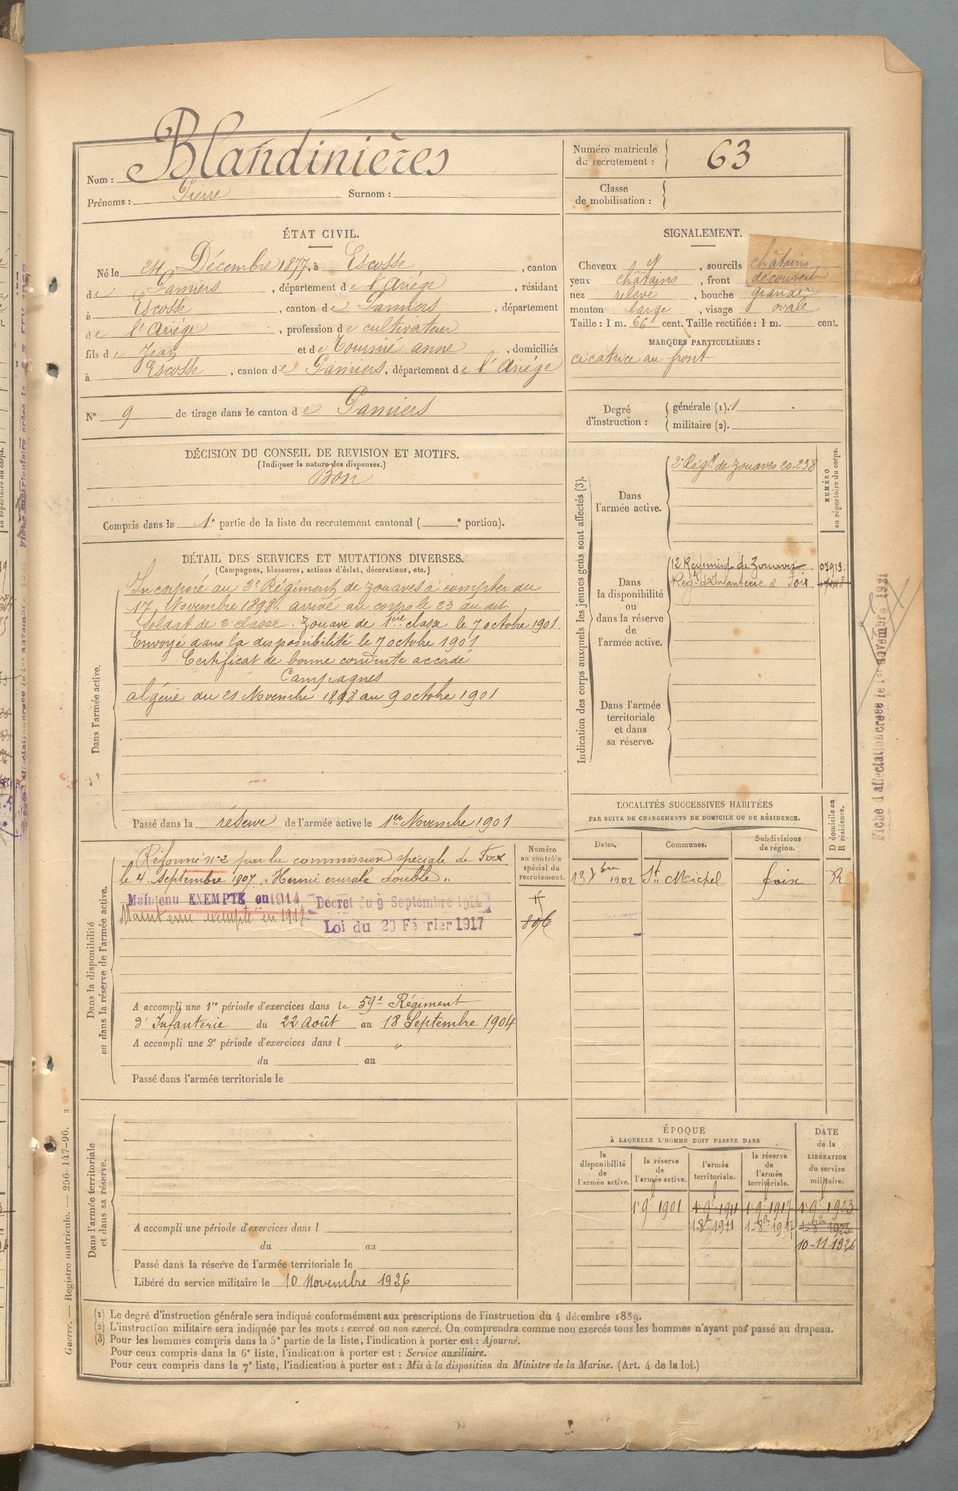 Nom : Blandinières
Prénoms : Pierre Surnom :
Numéro matricule du recrutement : 63
Classe de mobilisation :
ÉTAT CIVIL.
Né le 24 Décembre 1877, à Escosse, canton
de Pamiers, département de l'Ariège, résidant
à Escosse, canton de Pamiers, département
de l'Ariège, profession de cultivateur
fils de Jean et de anne, domiciliés
à Escosse, canton de Pamiers, département de l'Ariège
N° 9 de tirage dans le canton de Pamiers
SIGNALEMENT.
Cheveux, sourcils châtains
yeux châtains, front découvert
nez relevé, bouche grande
menton large, visage ovale
Taille : 1 m. 66 cent. Taille rectifiée : 1 m. cent.
MARQUES PARTICULIÈRES :
cicatrice au front
Degré d'instruction : générale (1). 1
militaire (2).
DÉCISION DU CONSEIL DE REVISION ET MOTIFS.
(Indiquer la nature des dispenses.)
Bon
Compris dans la 1e partie de la liste du recrutement cantonal ( e portion).
DÉTAIL DES SERVICES ET MUTATIONS DIVERSES.
(Campagnes, blessures, actions d'éclat, décorations, etc.)
Dans l'armée active.
Incorporé au 3e Régiment de zouaves à compter du
17 Novembre 1898. arrivé au corps le 23 du dit
Soldat de 2e classe. Zouave de 1ère classe le 7 octobre 1901
Envoyé dans la disponibilité le 7 octobre 1901
Certificat de bonne conduite accordé
Campagnes
algérie du 21 Novembre 1898 au 9 octobre 1901
Passé dans la réserve de l'armée active le 1er Novembre 1901
Indication des corps auxquels les jeunes gens sont affectés (3).
NUMÉRO au répertoire du corps.
Dans l'armée active.
3e Régt de zouaves 20.238
Dans la disponibilité ou dans la réserve de l'armée active.
12 Régiment de Zouaves 07913
Regt d'Infanterie à Foix
Dans l'armée territoriale et dans sa réserve.
Fiche d'affectation créée le 1er novembre 1921
Dans la disponibilité ou dans la réserve de l'armée active.
Réformé n° 2 par la commission spéciale de Foix
le 4 Septembre 1907, "Hernie crurale double".
Maintenu EXEMPTÉ en 1914 Décret du 9 Septembre 1914
Maintenu exempté en 1917 Loi du 20 Février 1917
Numéro au contrôle spécial du recrutement.
896
A accompli une 1re période d'exercices dans le 59e Régiment
d'Infanterie du 22 Août au 18 Septembre 1904
A accompli une 2e période d'exercices dans l "
du au
Passé dans l'armée territoriale le
LOCALITÉS SUCCESSIVES HABITÉES
PAR SUITE DE CHANGEMENTS DE DOMICILE OU DE RÉSIDENCE.
Dates. Communes. Subdivisions de région. D domicile ou R résidence.
13 1902 St Michel foix R
Dans l'armée territoriale et dans sa réserve.
A accompli une période d'exercices dans l
du au
Passé dans la réserve de l'armée territoriale le
Libéré du service militaire le 10 Novembre 1926
ÉPOQUE
À LAQUELLE L'HOMME DOIT PASSER DANS
la disponibilité de l'armée active.
la réserve de l'armée active.
l'armée territoriale.
la réserve de l'armée territoriale.
DATE de la LIBÉRATION du service militaire.
1 9 1901 1 9 1911 1 9 1917 1 9 1923
10-11 1926
(1) Le degré d'instruction générale sera indiqué conformément aux prescriptions de l'instruction du 4 décembre 1889.
(2) L'instruction militaire sera indiquée par les mots : exercé ou non exercé. On comprendra comme non exercés tous les hommes n'ayant pas passé au drapeau.
(3) Pour les hommes compris dans la 5e partie de la liste, l'indication à porter est : Ajourné.
Pour ceux compris dans la 6e liste, l'indication à porter est : Service auxiliaire.
Pour ceux compris dans la 7e liste, l'indication à porter est : Mis à la disposition du Ministre de la Marine. (Art. 4 de la loi.)
Guerre. — Registre matricule. — 256-147-96.